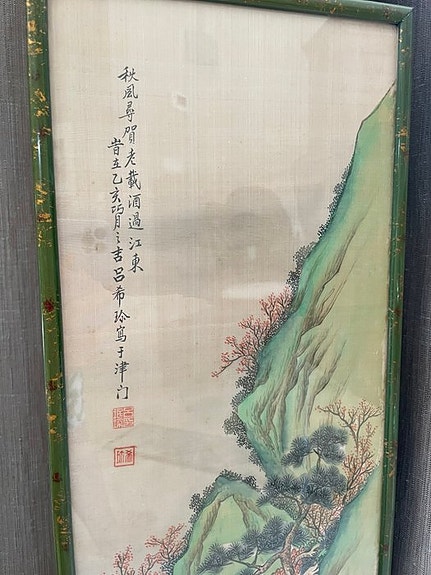 秋風尋賀老載酒過江東
旹在乙亥巧月之吉呂希玲寫于津门